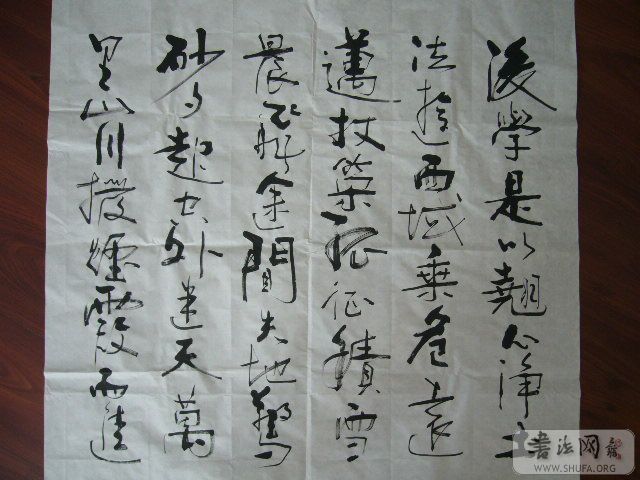 後學是以翹心淨土
法遊西域乘危遠
邁杖策孤征積雪
晨飛途間失地驚
砂夕起空外迷天萬
里山川撥煙霞而進
书法网
WWW.SHUFA.ORG